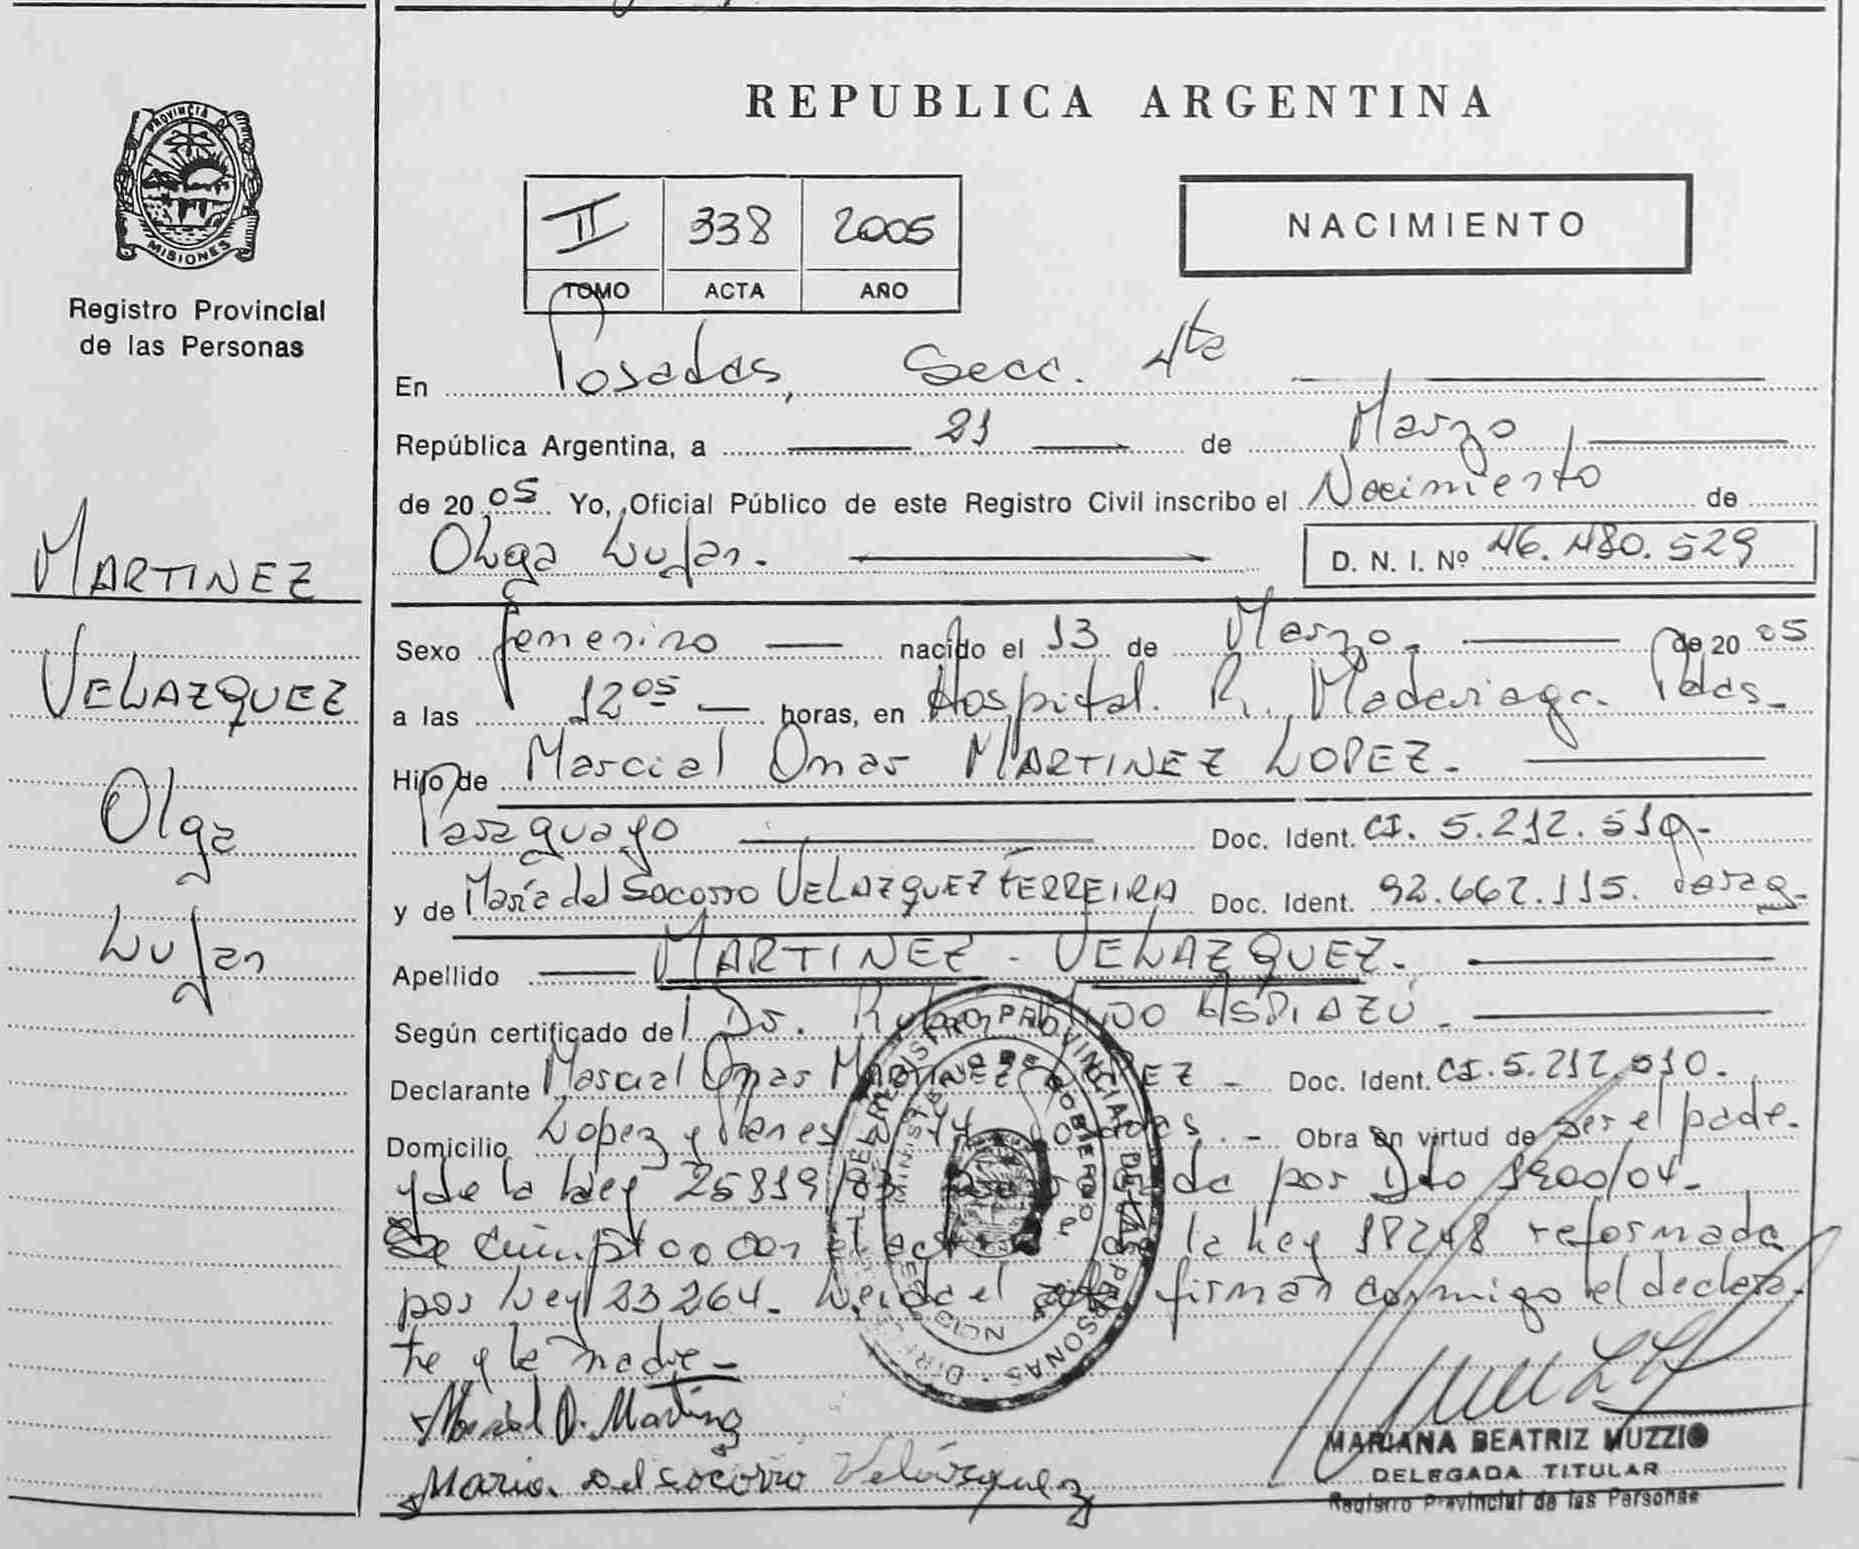 REPUBLICA ARGENTINA
PROVINCIA DE
MISIONES
Registro Provincial
de las Personas
II 338 2005
TOMO ACTA AÑO
NACIMIENTO
En Posadas, Secc. 4ta
República Argentina, a 21 de Marzo
de 2005 Yo, Oficial Público de este Registro Civil inscribo el Nacimiento de
Olga Lujan. D. N. I. Nº 46.480.529
MARTINEZ
VELAZQUEZ
Olga
Lujan
Sexo femenino nacido el 13 de Marzo de 2005
a las 12 05 horas, en Hospital. R. Madariaga. Pdas
Hijo de Marcial Omar MARTINEZ LOPEZ.
Paraguayo Doc. Ident. CI. 5.212.510
y de María del Socorro VELAZQUEZ FERREIRA Doc. Ident. 92.667.115. Parag.
Apellido MARTINEZ - VELAZQUEZ.
Según certificado del Dr. ASPIAZÚ
Declarante Marcial Omar MARTINEZ Doc. Ident. CI. 5.212.510.
Domicilio Lopez y Planes Obra en virtud de ser el padre.
y de la Ley 25819/03 por Dto 1900/04.
Se cumplió con el la Ley 18248 reformada
por Ley 23264. Leida el firman conmigo el declaran
te y la madre
Marcial O. Martinez
Maria. Del Socorro Velázquez
REGISTRO PROVINCIAL DE LAS PERSONAS
MINISTERIO DE GOBIERNO
MARIANA BEATRIZ MUZZIO
DELEGADA TITULAR
Registro Provincial de las Personas